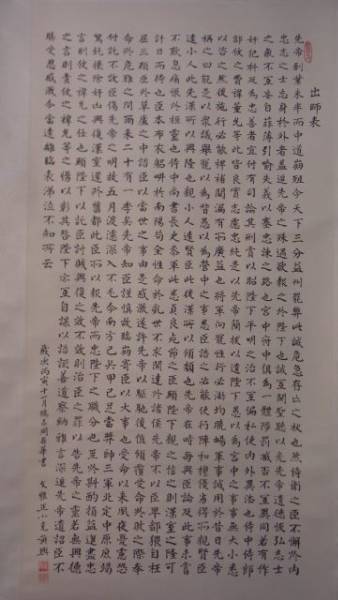 出師表
先帝創業未半而中道崩殂今天下三分益州罷弊此誠危急存亡之秋也然侍衛之臣不懈於內
忠志之士忘身於外者蓋追先帝之殊遇欲報之於陛下也誠宜開張聖聽以光先帝遺德恢弘志士
之氣不宜妄自菲薄引喻失義以塞忠諫之路也宮中府中俱為一體陟罰臧否不宜異同若有作
奸犯科及為忠善者宜付有司論其刑賞以昭陛下平明之治不宜偏私使內外異法也侍中侍郎
郭攸之費禕董允等此皆良實志慮忠純是以先帝簡拔以遺陛下愚以為宮中之事事無大小悉
以咨之然後施行必能裨補闕漏有所廣益也將軍向寵性行淑均曉暢軍事試用於昔日先帝
稱之曰能是以眾議舉寵以為督愚以為營中之事悉以諮之必能使行陣和穆優劣得所也親賢臣
遠小人此先漢所以興隆也親小人遠賢臣此後漢所以傾頹也先帝在時每與臣論此事未嘗
不歎息痛恨於桓靈也侍中尚書長史參軍此悉貞良死節之臣願陛下親之信之則漢室之隆可
計日而待也臣本布衣躬耕於南陽苟全性命於亂世不求聞達於諸侯先帝不以臣卑鄙猥自枉
屈三顧臣於草廬之中諮臣以當世之事由是感激遂許先帝以驅馳後值傾覆受命於敗軍之際奉
命於危難之間爾來二十有一年矣先帝知臣謹慎故臨崩寄臣以大事也受命以來夙夜憂歎恐
付託不效以傷先帝之明故五月渡瀘深入不毛今南方已定兵甲已足當獎帥三軍北定中原庶竭
駑鈍攘除奸凶興復漢室還於舊都此臣所以報先帝而忠陛下之職分也至於斟酌損益進盡忠
言則攸之禕允之任也願陛下託臣以討賊興復之效不效則治臣之罪以告先帝之靈若無興德
之言則責攸之禕允等之慢以彰其咎陛下亦宜自謀以諮諏善道察納雅言深追先帝遺詔臣不
勝受恩感激今當遠離臨表涕泣不知所云
歲次丙寅十一月 書